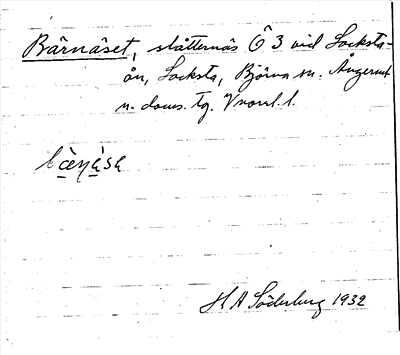 Bärnäset, slåtternäs Ö 3 vid Locksta-
ån, Locksta, Björna sn. Ångerml.
n. doms. tg. V norrl. l.
H A Söderberg 1932